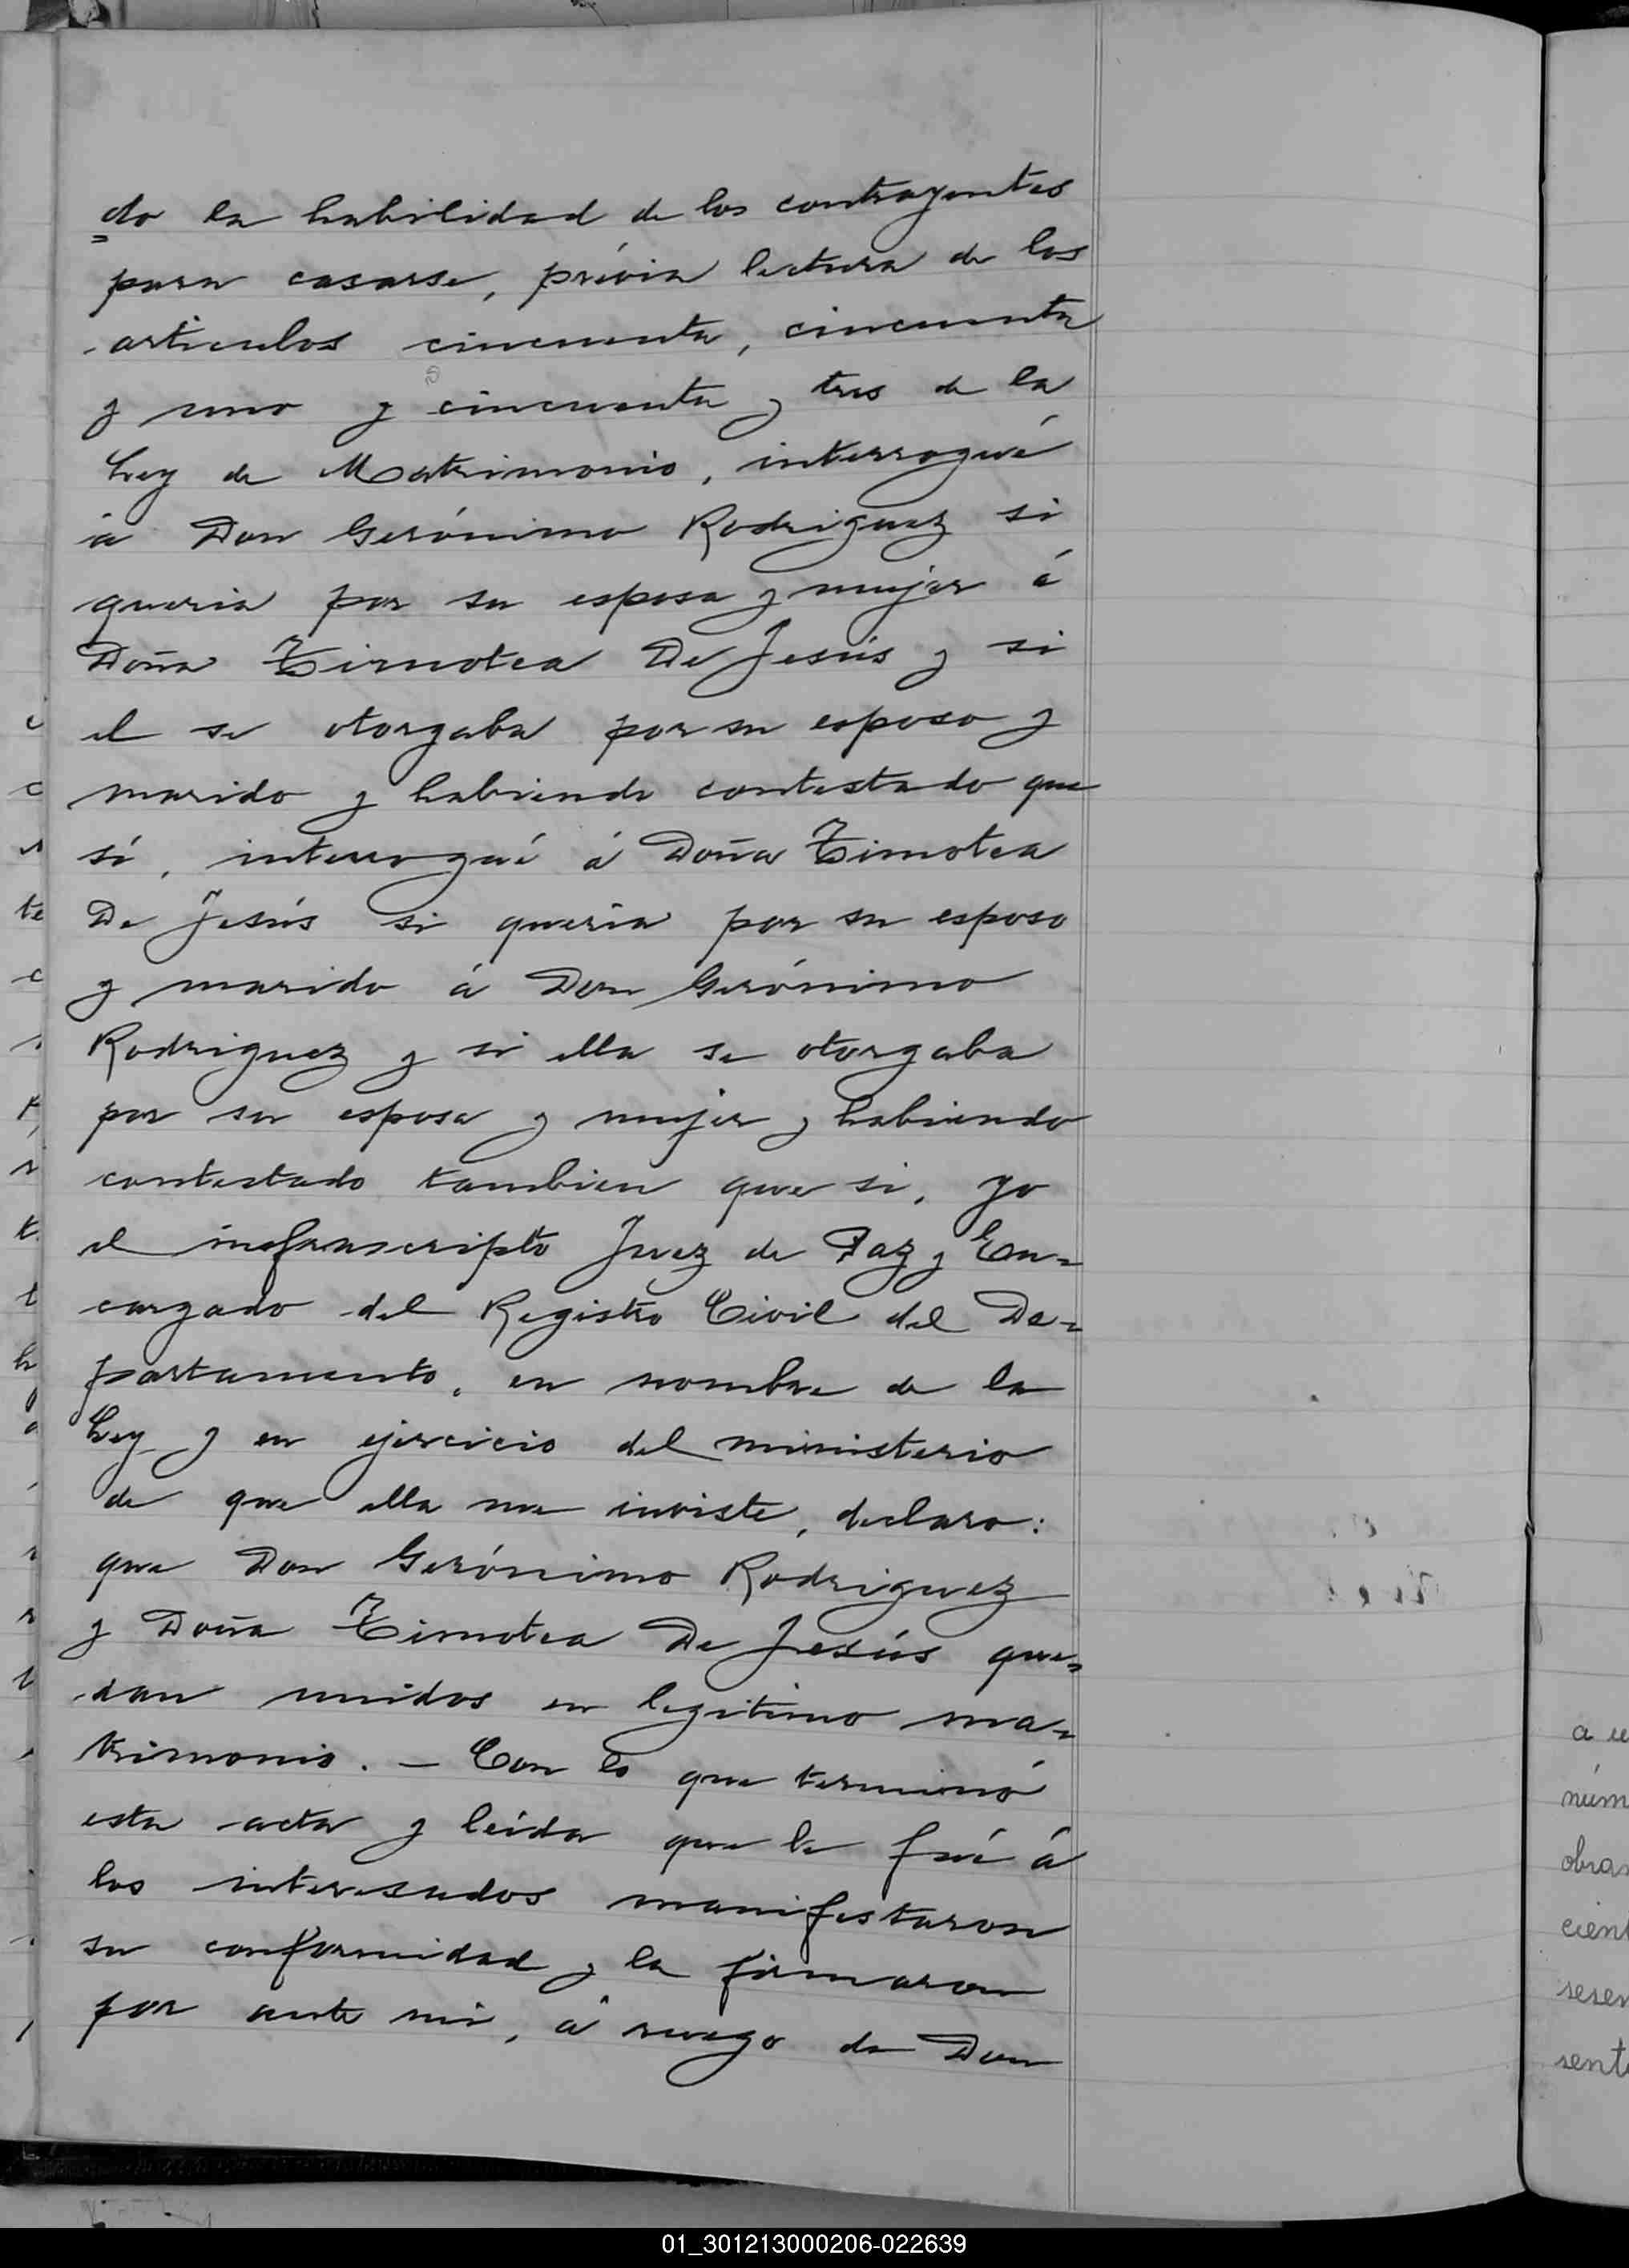 do la habilidad de los contrayentes
para casarse, prévia lectura de los
articulos cincuenta, cincuenta
y uno y cincuenta y tres de la
Ley de Matrimonio, interrogué
á Don Gerónimo Rodriguez si
queria por su esposa y mujer á
Doña Timotea De Jesús y si
el se otorgaba por su esposo y
marido y habiendo contestado que
sí, interrogué á Doña Timotea
De Jesús si queria por su esposo
y marido á Don Gerónimo
Rodriguez y si ella se otorgaba
por su esposa y mujer y habiendo
contestado tambien que si, yo
el infranscripto Juez de Paz y En=
cargado del Registro Civil del De=
partamento, en nombre de la
Ley y en ejercicio del ministerio
de que ella me inviste, declaro:
que Don Gerónimo Rodriguez
y Doña Timotea De Jesús que=
dan unidos en legitimo ma=
trimonio. — Con lo que terminó
esta acta y leida que le fué á
los interesados manifestaron
su conformidad y la firmaron
por ante mi, á ruego de Don
a
núm
obra
cient
sesen
sent
01_301213000206-022639